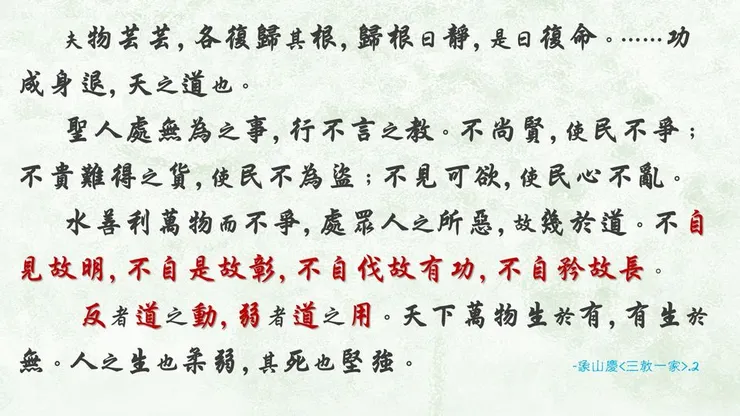 夫物芸芸，各復歸其根，歸根曰靜，是曰復命。……功
成身退，天之道也。
聖人處無為之事，行不言之教。不尚賢，使民不爭；
不貴難得之貨，使民不為盜；不見可欲，使民心不亂。
水善利萬物而不爭，處眾人之所惡，故幾於道。不自
見故明，不自是故彰，不自伐故有功，不自矜故長。
反者道之動，弱者道之用。天下萬物生於有，有生於
無。人之生也柔弱，其死也堅強。
-象山慶<三教一家>.2